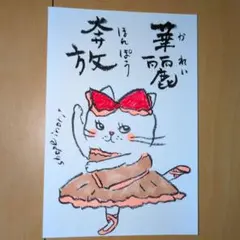 華麗
かれい
奔放
ほんぽう